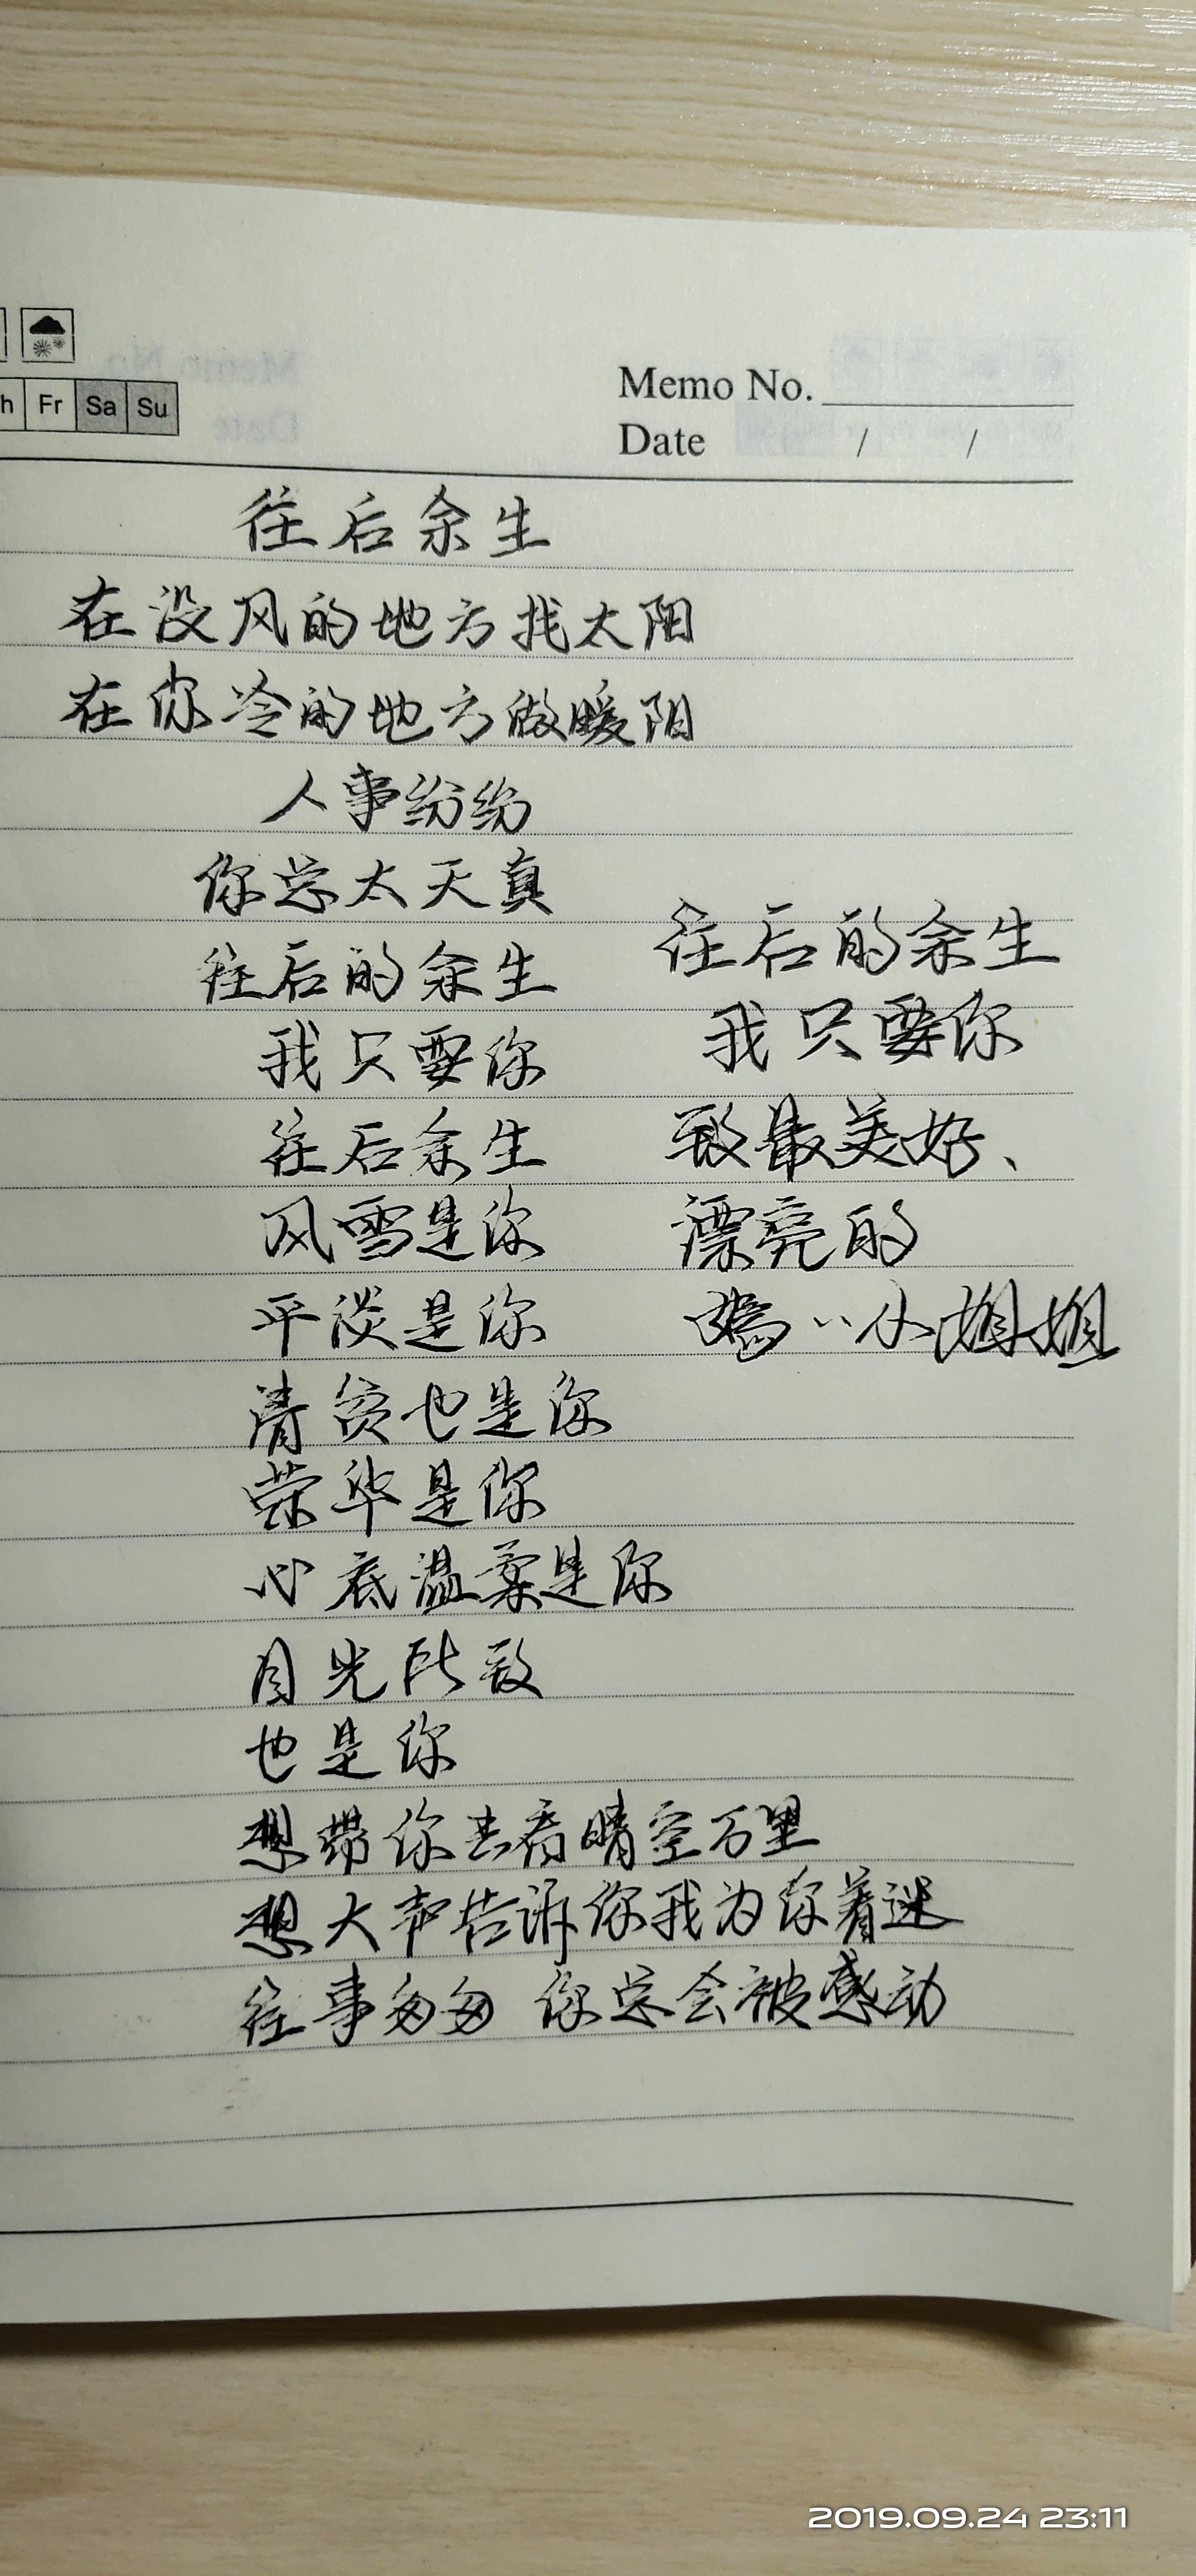 h Fr Sa Su
Memo No.
Date / /
往后余生
在没风的地方找太阳
在你冷的地方做暖阳
人事纷纷
你总太天真
往后的余生
我只要你
往后余生
风雪是你
平淡是你
清贫也是你
荣华是你
心底温柔是你
目光所致
也是你
想带你去看晴空万里
想大声告诉你我为你着迷
往事匆匆 你总会被感动
往后的余生
我只要你
致最美好、
漂亮的
小姐姐
2019.09.24 23:11